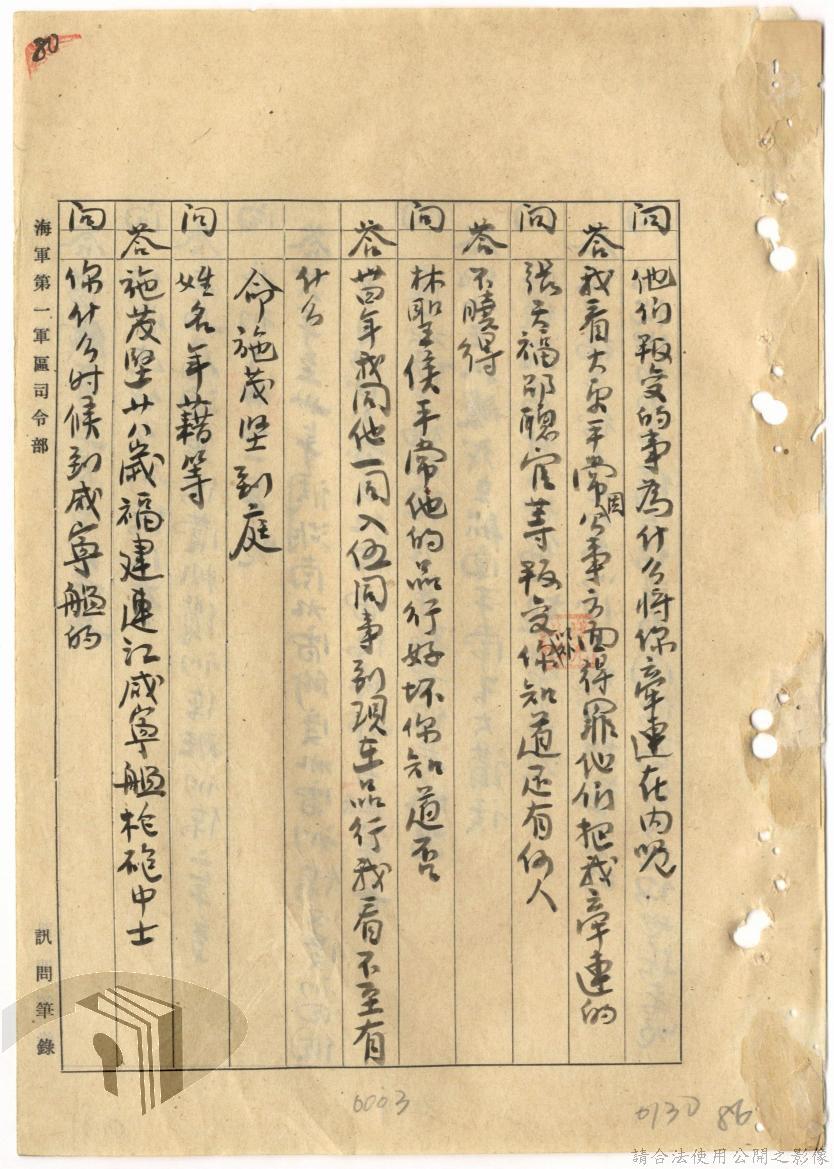 80
問 他们叛变的事為什么将你牽連在內呢
答 我看大更平常因公事方面得罪他们把我牽連的
問 張天禍邵聰官等叛变你知道还有何人
答 不曉得
問 林聖侯平常他的品行好坏你知道否
答 卅四年我同他一同入伍同事到現在品行我看不至有
什么
命施茂坚到庭
問 姓名年藉等
答 施茂堅廿八歲福建連江咸寧艦枪砲中士
問 你什么时候到咸寧艦的
海軍第一軍區司令部
訊問筆錄
0003
0130 86
請合法使用公開之影像